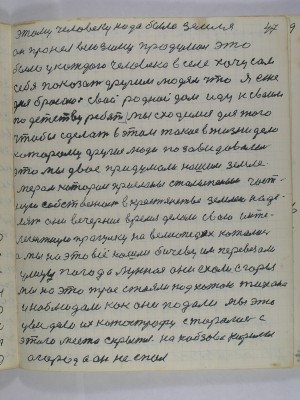 этому человеку надо было земля 47
он провел вместику придумал это
было у каждого человека в селе хочу сам
себя показать другим людям что я еже
бросаю свой родной дом иду к своим
по детству ребят мы сходимся для того
чтобы сделать в этом такое в жизни дело
которому другие люди позавидовали
это мы двое придумали нашим земле
мерам которым присланы сталинным част-
ную собственост в крестьянство землю наде-
лят они вечернее время делали свою инте-
лигентную прогулку на велосипедах катались
а мы на это всё нашли бичеву им перевязали
улицу погода лунная они ехали с горы
мы на это туже стояли под хатою тихонько
и наблюдали как они падали мы это
увидали их катострофу старались с
этого места скрытся на кобзова
огорода он не спал